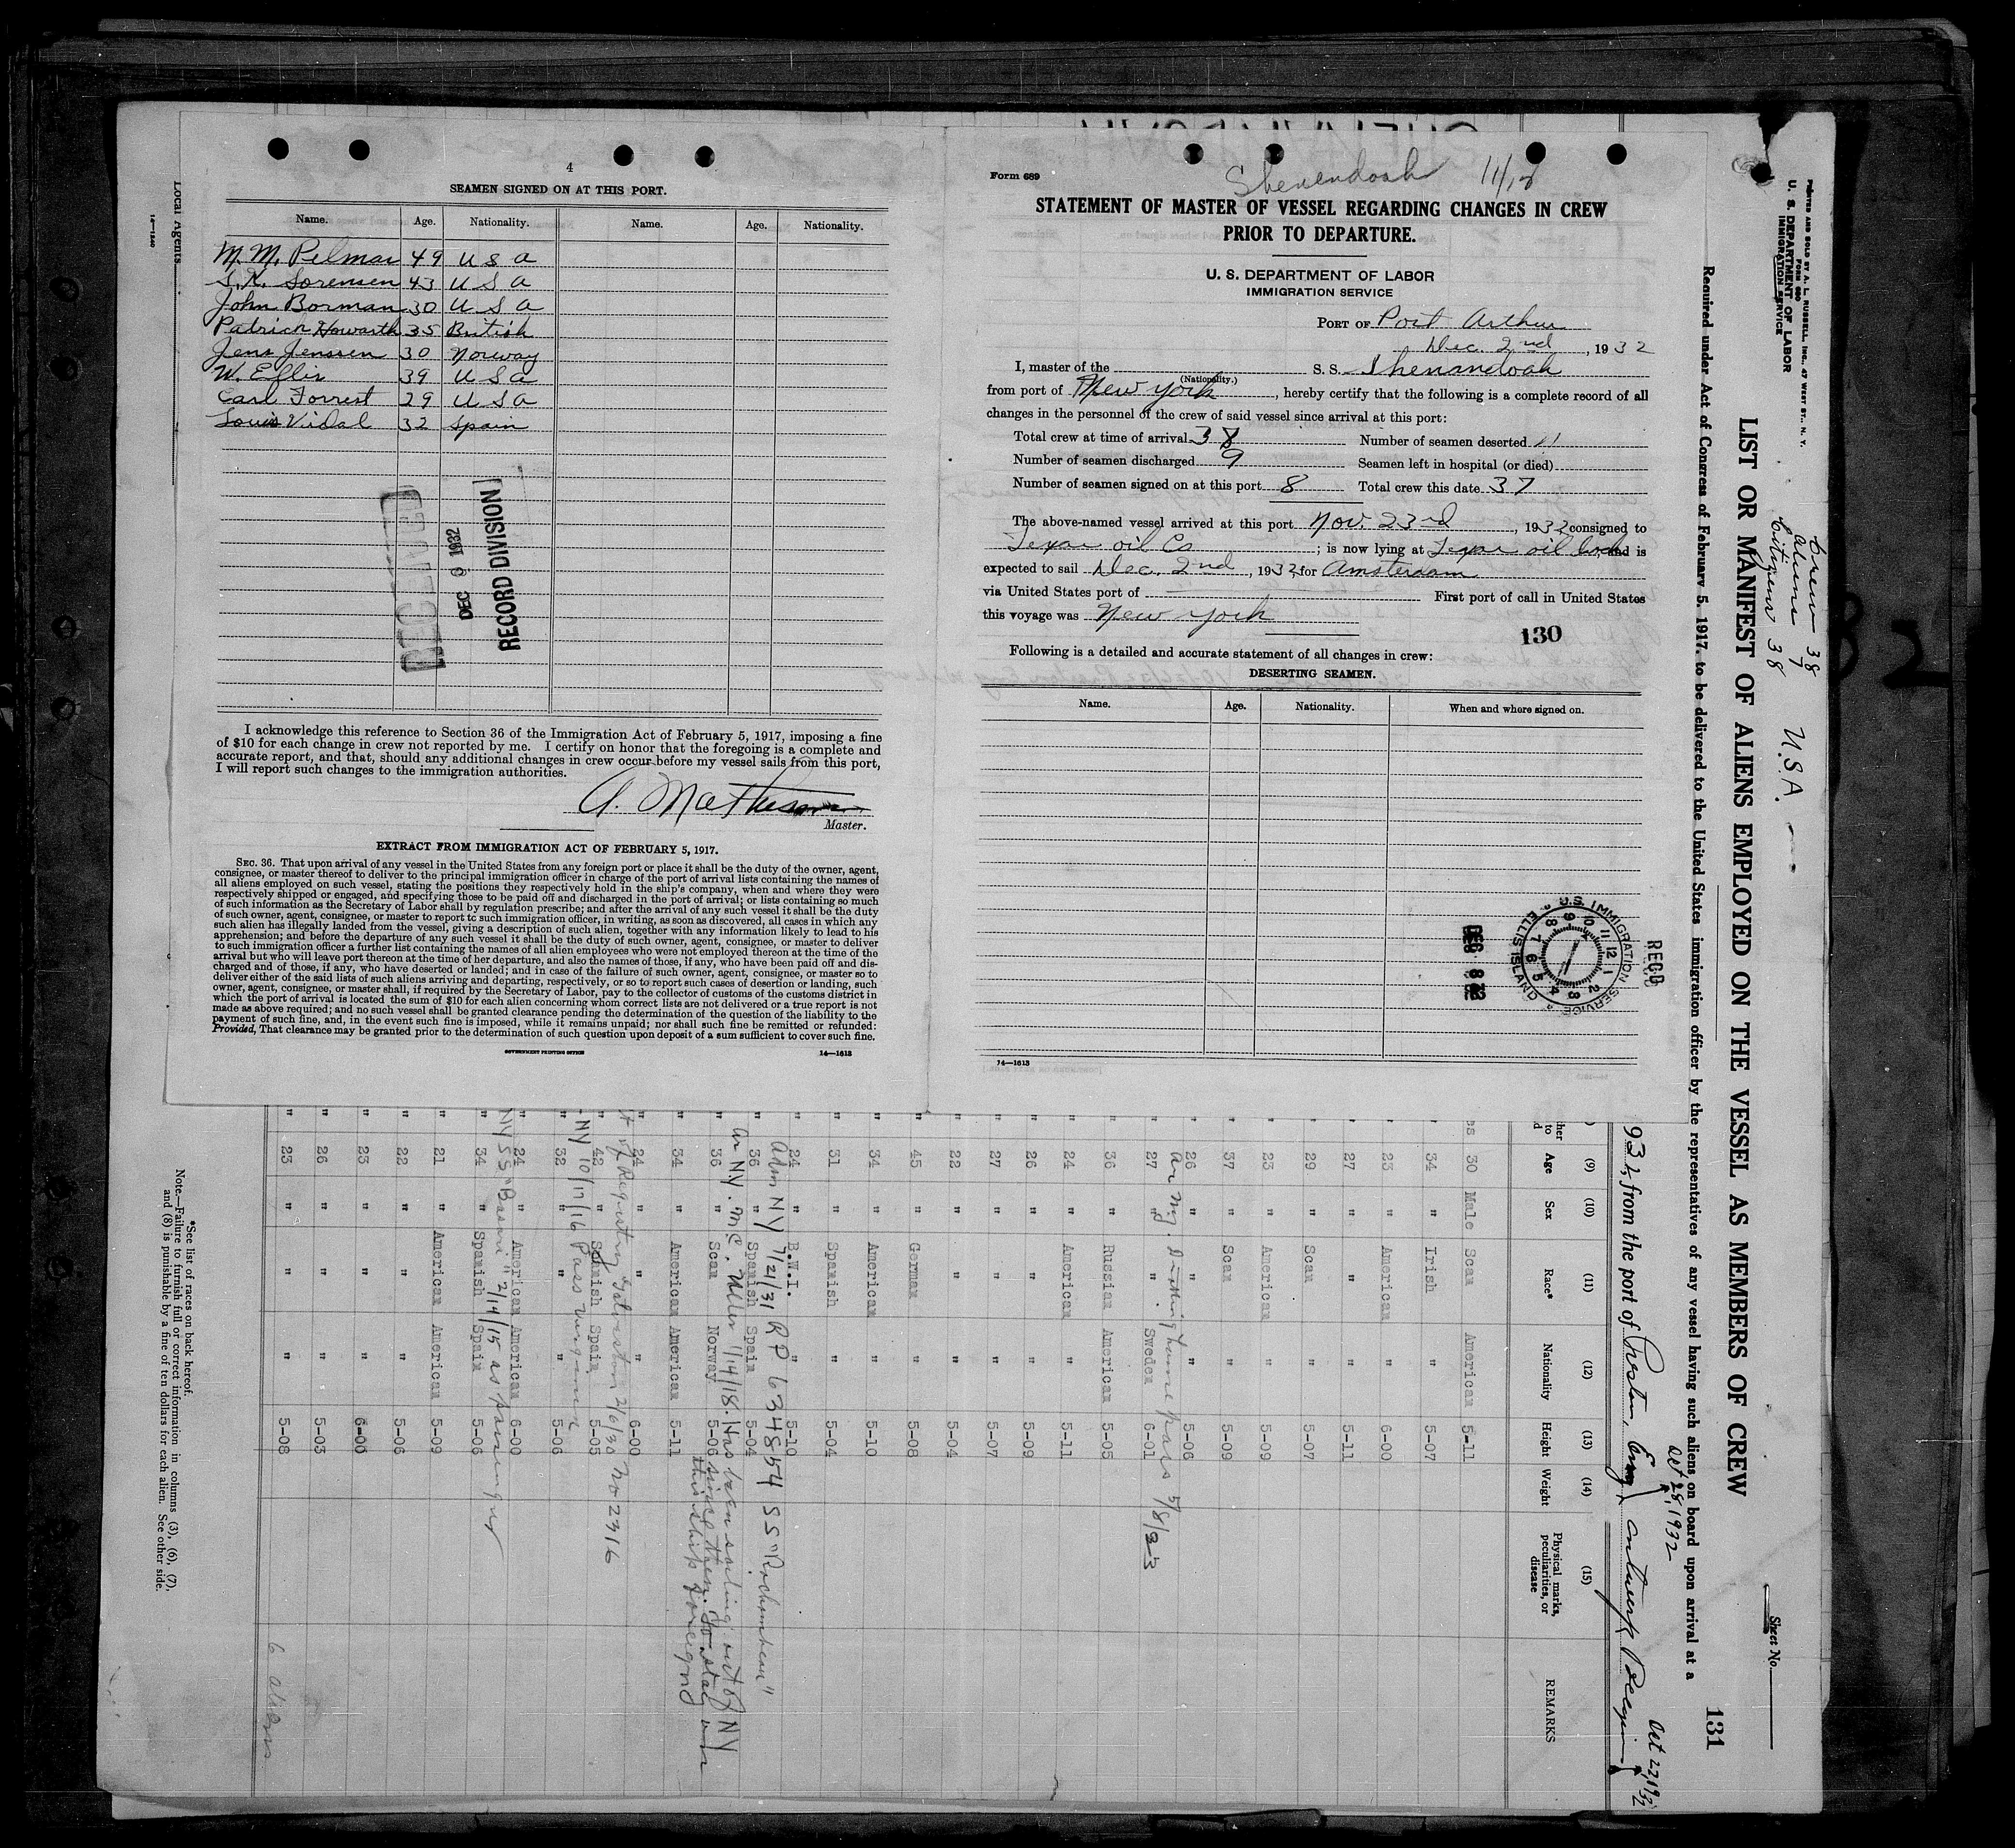 4
SEAMEN SIGNED ON AT THIS PORT.
Name. Age. Nationality. Name. Age. Nationality.
M. M. Pelmar 49 U S A
S. K. Sorensen 43 U S A
John Borman 30 U S A
Patrick Howarth 35 British
Jens Jenssen 30 Norway
W. Ellis 39 U S A
Carl Forrest 29 U S A
Louis Vidal 32 Spain
DEC 1932
RECORD DIVISION
I acknowledge this reference to Section 36 of the Immigration Act of February 5, 1917, imposing a fine
of $10 for each change in crew not reported by me. I certify on honor that the foregoing is a complete and
accurate report, and that, should any additional changes in crew occur before my vessel sails from this port,
I will report such changes to the immigration authorities.
A. Mathieson
Master.
EXTRACT FROM IMMIGRATION ACT OF FEBRUARY 5, 1917.
SEC. 36. That upon arrival of any vessel in the United States from any foreign port or place it shall be the duty of the owner, agent,
consignee, or master thereof to deliver to the principal immigration officer in charge of the port of arrival lists containing the names of
all aliens employed on such vessel, stating the positions they respectively hold in the ship's company, when and where they were
respectively shipped or engaged, and specifying those to be paid off and discharged in the port of arrival; or lists containing so much
of such information as the Secretary of Labor shall by regulation prescribe; and after the arrival of any such vessel it shall be the duty
of such owner, agent, consignee, or master to report to such immigration officer, in writing, as soon as discovered, all cases in which any
such alien has illegally landed from the vessel, giving a description of such alien, together with any information likely to lead to his
apprehension; and before the departure of any such vessel it shall be the duty of such owner, agent, consignee, or master to deliver
to such immigration officer a further list containing the names of all alien employees who were not employed thereon at the time of the
arrival but who will leave port thereon at the time of her departure, and also the names of those, if any, who have been paid off and dis-
charged and of those, if any, who have deserted or landed; and in case of the failure of such owner, agent, consignee, or master so to
deliver either of the said lists of such aliens arriving and departing, respectively, or so to report such cases of desertion or landing, such
owner, agent, consignee, or master shall, if required by the Secretary of Labor, pay to the collector of customs of the customs district in
which the port of arrival is located the sum of $10 for each alien concerning whom correct lists are not delivered or a true report is not
made as above required; and no such vessel shall be granted clearance pending the determination of the question of the liability to the
payment of such fine, and, in the event such fine is imposed, while it remains unpaid; nor shall such fine be remitted or refunded:
Provided, That clearance may be granted prior to the determination of such question upon deposit of a sum sufficient to cover such fine.
GOVERNMENT PRINTING OFFICE 14—1613
Form 689
Shenendoah 11/18
STATEMENT OF MASTER OF VESSEL REGARDING CHANGES IN CREW
PRIOR TO DEPARTURE.
U. S. DEPARTMENT OF LABOR
IMMIGRATION SERVICE
PORT OF Port Arthur
Dec. 2nd, 1932
I, master of the S. S. Shenandoah
(Nationality.)
from port of New York, hereby certify that the following is a complete record of all
changes in the personnel of the crew of said vessel since arrival at this port:
Total crew at time of arrival 38 Number of seamen deserted
Number of seamen discharged 9 Seamen left in hospital (or died)
Number of seamen signed on at this port 8 Total crew this date 37
The above-named vessel arrived at this port Nov. 23rd, 1932 consigned to
Texas oil Co; is now lying at Texas oil dock, and is
expected to sail Dec. 2nd, 1932, for Amsterdam
via United States port of First port of call in United States
this voyage was New York
130
Following is a detailed and accurate statement of all changes in crew:
DESERTING SEAMEN.
Name. Age. Nationality. When and where signed on.
REC'D
U.S. IMMIGRATION SERVICE
ELLIS ISLAND
DEC 8
14—1613
Local Agents
14-1240
PRINTED AND SOLD BY A. L. RUSSELL, INC., 47 WEST ST., N. Y.
FORM 680
U. S. DEPARTMENT OF LABOR
IMMIGRATION SERVICE
Crew 38
Aliens 7
Citizens 38
U.S.A.
Sheet No.
LIST OR MANIFEST OF ALIENS EMPLOYED ON THE VESSEL AS MEMBERS OF CREW
Required under Act of Congress of February 5, 1917, to be delivered to the United States immigration officer by the representatives of any vessel having such aliens on board upon arrival at a
131
Oct 28, 1932
Oct 22, 1932
1932, from the port of Preston, Eng, Antwerp Belgium
(9) (10) (11) (12) (13) (14) (15)
Age Sex Race* Nationality Height Weight Physical marks, peculiarities, or disease REMARKS
30 Male Scan American 5-11
34 " Irish " 5-07
23 " American " 6-00
27 " " " 5-11
29 " Scan " 5-07
23 " American " 5-09
37 " Scan " 5-09
26 " " " 5-06
27 " " Sweden 6-01
36 " Russian American 5-05
24 " American " 5-11
26 " " " 5-09
27 " " " 5-07
22 " " " 5-04
45 " German " 5-08
34 " American " 5-10
31 " Spanish " 5-04
24 " B.W.I. " 5-10
Adm NY 7/21/31 RP 634854 SS "Rochambeau"
36 " Spanish Spain 5-04
Arr NY. 1/14/18. Has been sailing out of NY
36 " Scan Norway 5-06
since then. To stay on
this ship foreign
34 " American American 5-11
24 " " " 6-00
of Registry Galveston 2/6/30 No 2316
42 " Spanish Spain 5-05
NY 10/17/16 Pass
32 " " " 5-06
24 " American American 6-00
NY SS 2/14/15 as passenger
34 " Spanish Spain 5-06
21 " American American 5-09
22 " " " 5-06
23 " " " 6-00
26 " " " 5-03
23 " " " 5-08
6 aliens
*See list of races on back hereof.
Note.—Failure to furnish full or correct information in columns (3), (6), (7),
and (8) is punishable by a fine of ten dollars for each alien. See other side.